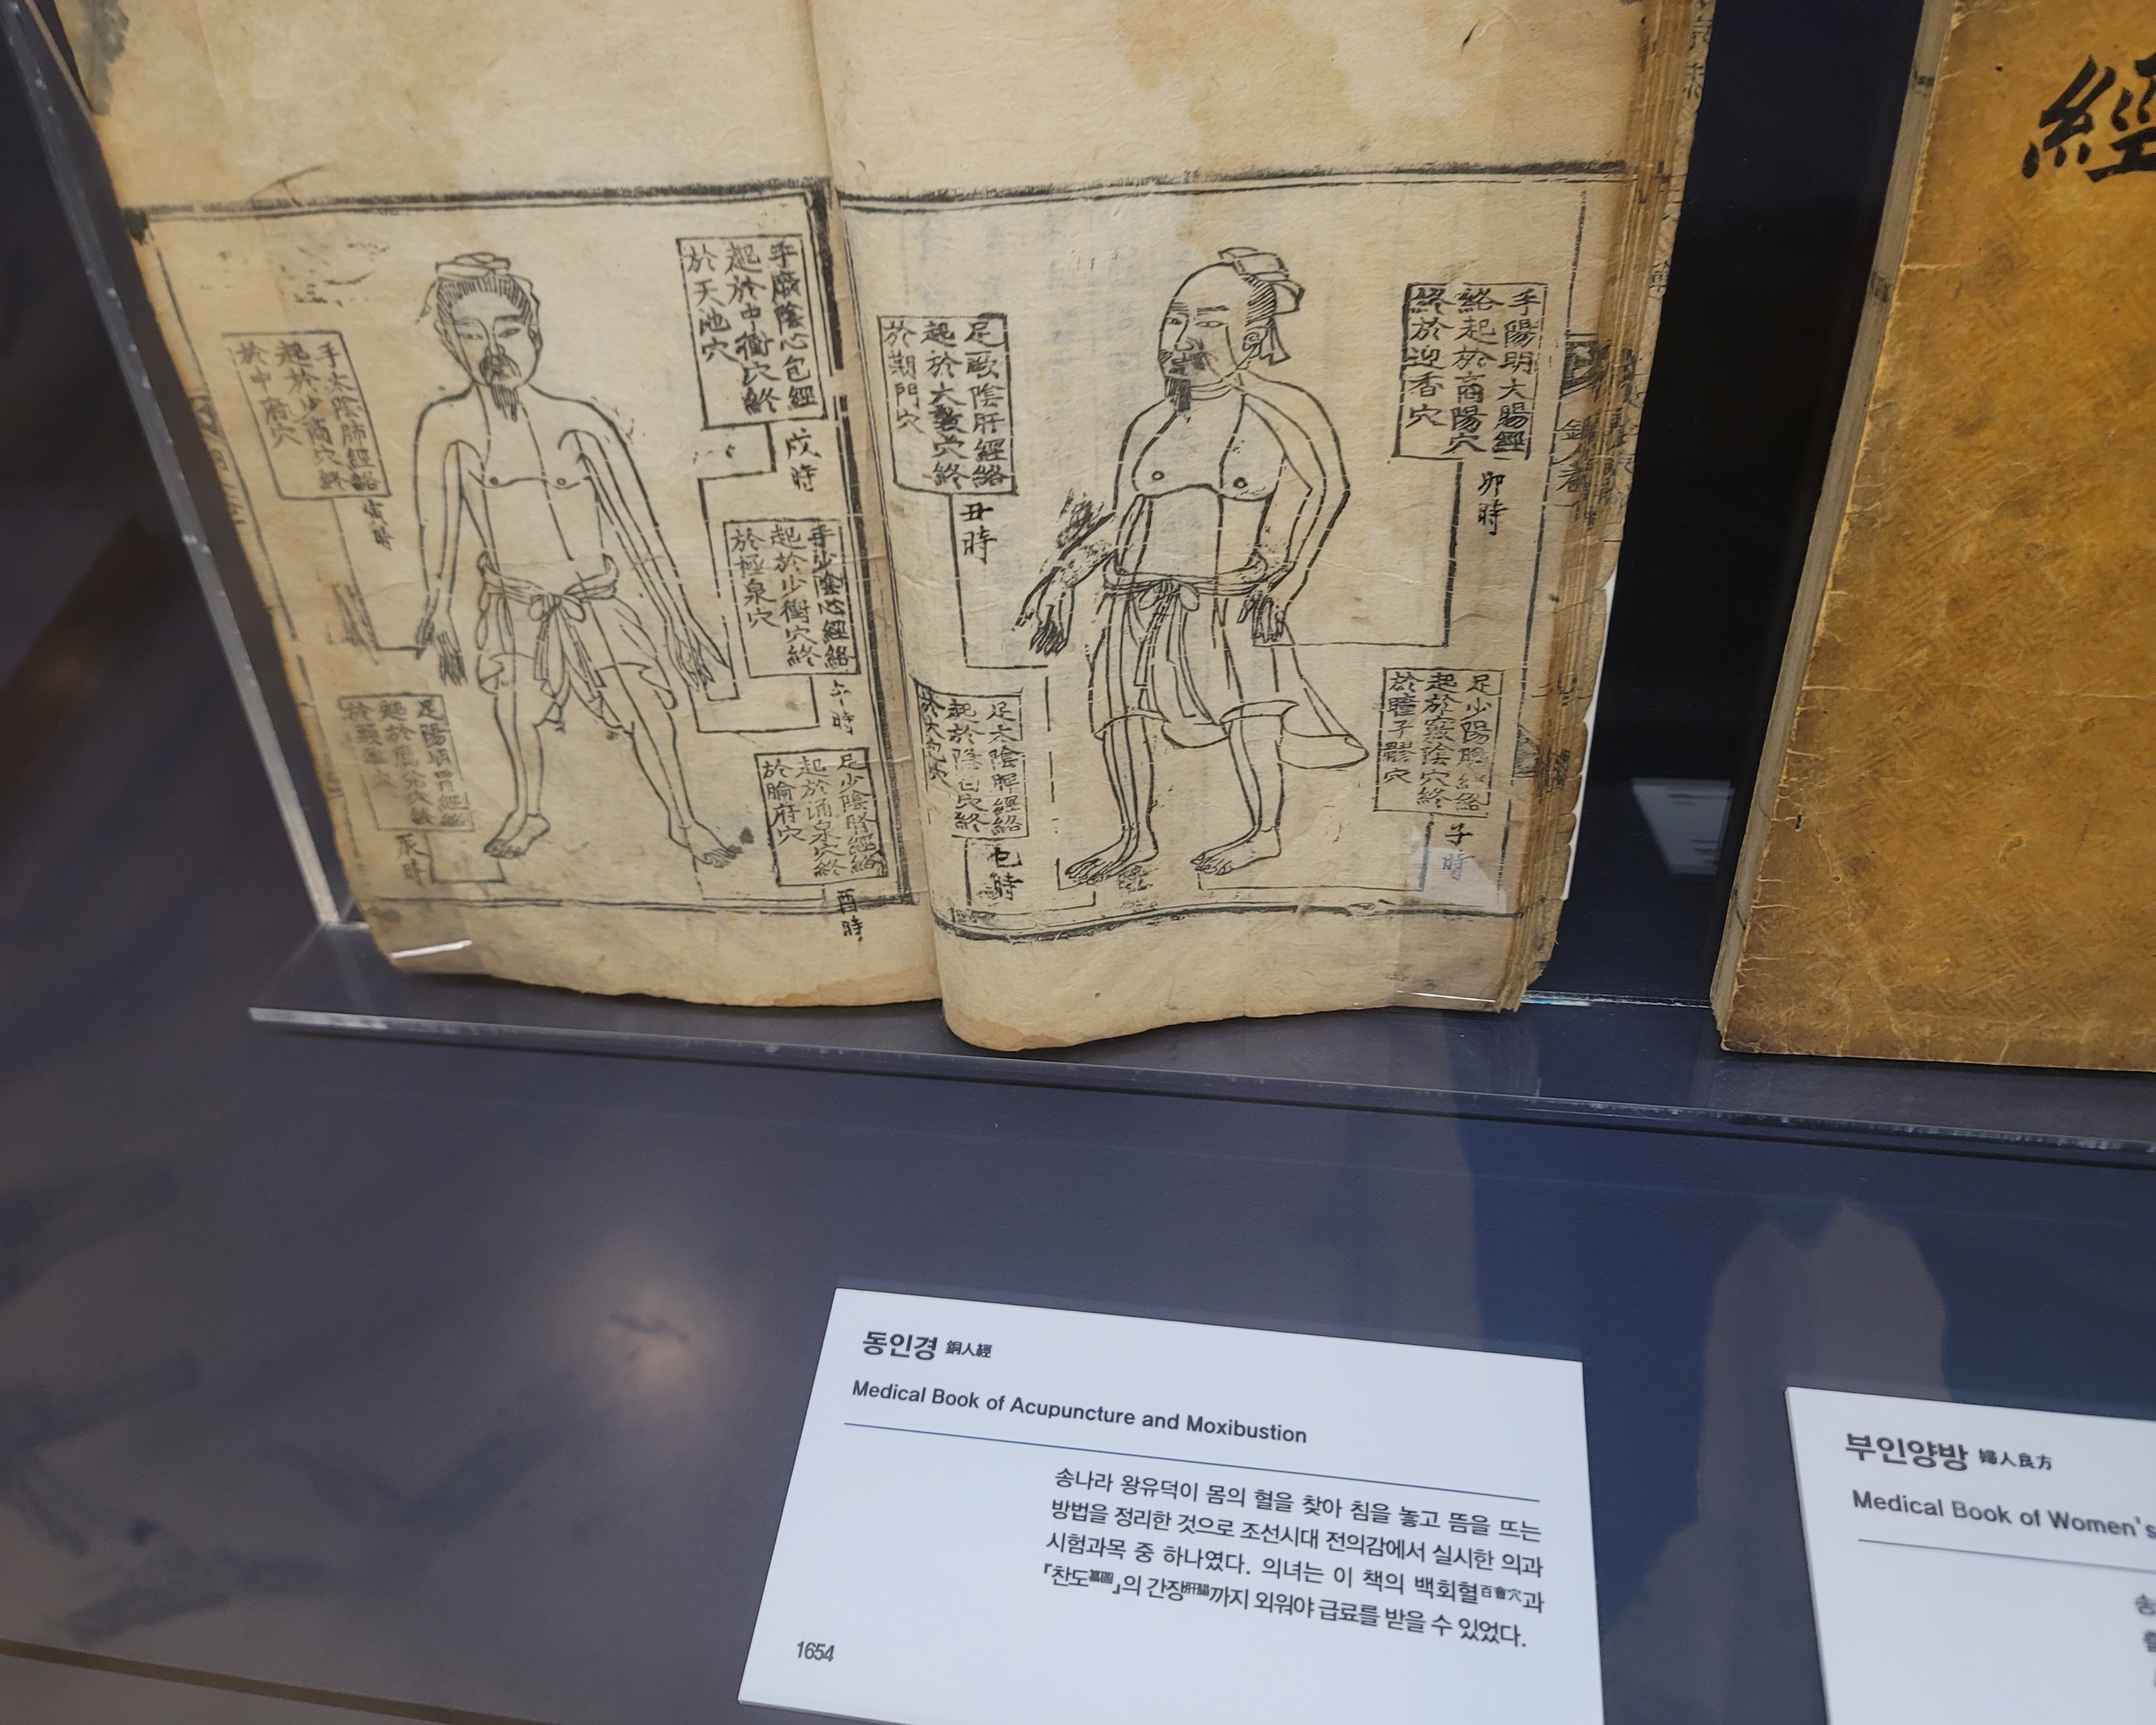 手厥陰心包經
起於中衝穴終
於天池穴
戌時
手太陰肺經絡
起於少商穴終
於中府穴
寅時
手少陰心經絡
起於少衝穴終
於極泉穴
午時
足陽明胃經
辰時
足少陰腎經絡
起於涌泉穴終
於腧府穴
酉時
手陽明大腸經
絡起於商陽穴
終於迎香穴
卯時
足厥陰肝經絡
起於大敦穴終
於期門穴
丑時
足少陽膽經絡
起於竅陰穴終
於瞳子髎穴
子時
足太陰脾經絡
起於隱白穴終
於大包穴
巳時
經
동인경 銅人經
Medical Book of Acupuncture and Moxibustion
송나라 왕유덕이 몸의 혈을 찾아 침을 놓고 뜸을 뜨는
방법을 정리한 것으로 조선시대 전의감에서 실시한 의과
시험과목 중 하나였다. 의녀는 이 책의 백회혈百會穴과
『찬도纂圖』의 간장肝臟까지 외워야 급료를 받을 수 있었다.
1654
부인양방 婦人良方
Medical Book of Women's